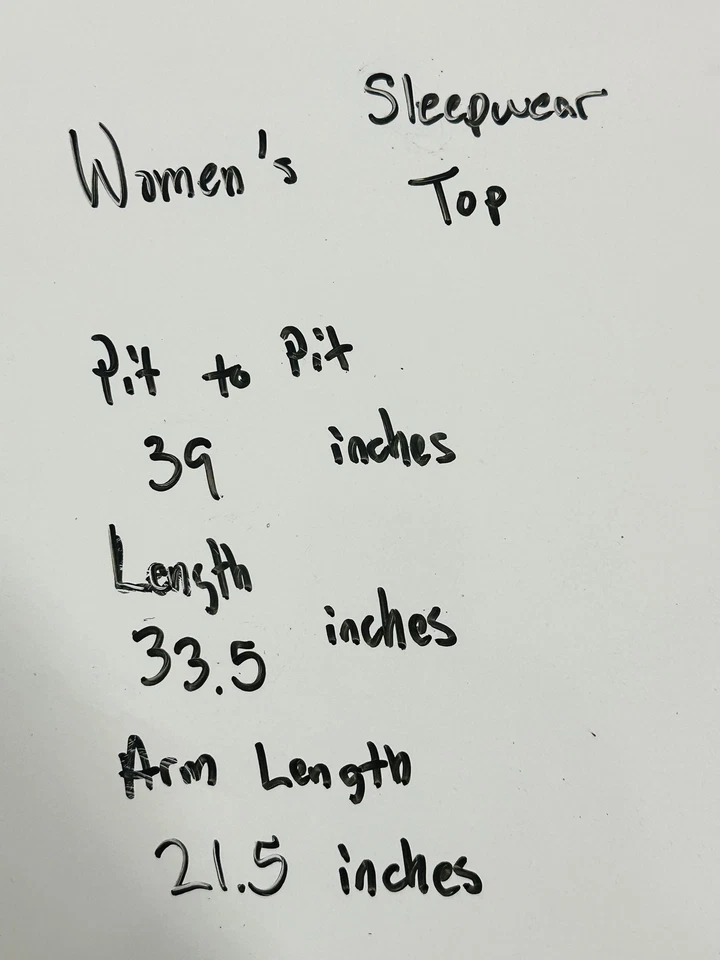 Women's Sleepwear
Top
Pit to Pit
39 inches
Length
33.5 inches
Arm Length
21.5 inches